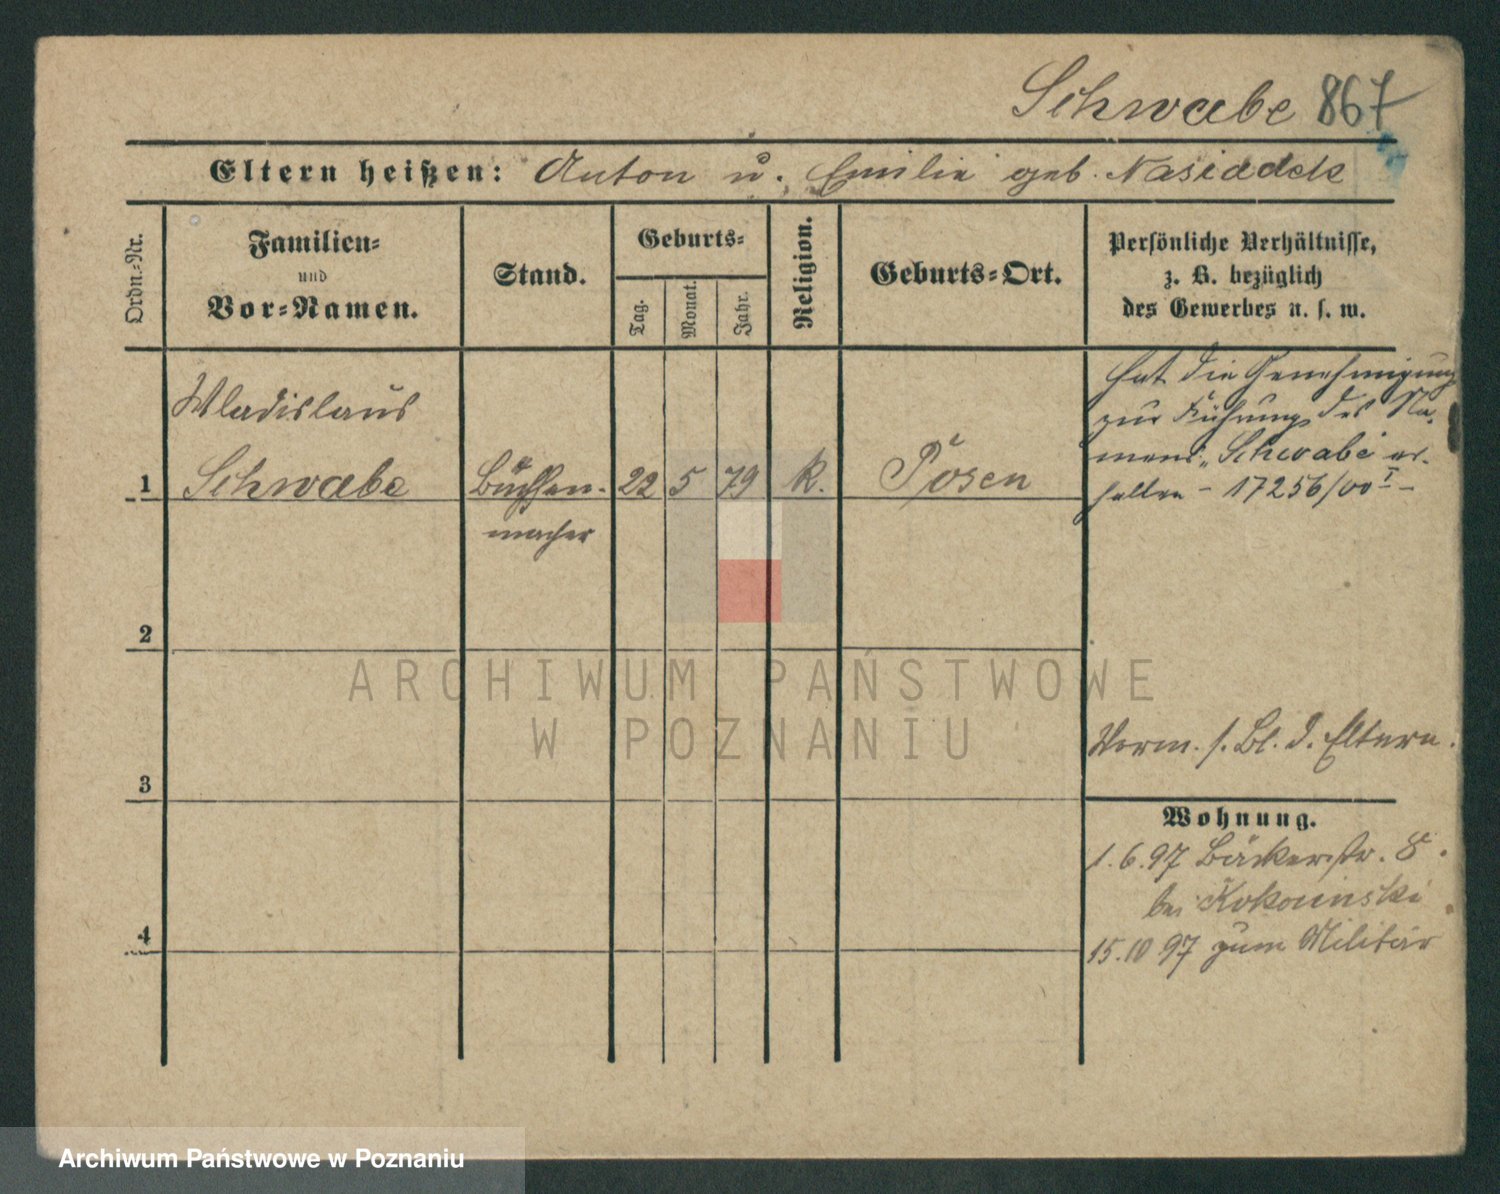 Schwabe 867
Eltern heißen: Anton u. Emilie geb. Nasiadek
Ordn.-Nr.
Familien-
und
Vor-Namen.
Stand.
Geburts-
Tag.
Monat.
Jahr.
Religion.
Geburts-Ort.
Persönliche Verhältnisse,
z. B. bezüglich
des Gewerbes u. s. w.
Wladislaus
1 Schwabe Büchsen- 22 5 79 k. Posen
macher
hat die Genehmigung
zur Führung des Na-
mens „Schwabe" er-
halten - 17256/00 I -
2
ARCHIWUM PAŃSTWOWE
W POZNANIU
Vorm. s. Bl. d. Eltern.
3
Wohnung.
1.6.97 Bäckerstr. 8.
bei
4
15.10 97 zum Militär
Archiwum Państwowe w Poznaniu